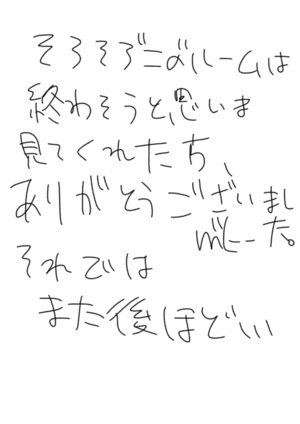 そろそろこのルームは
終わそうと思いま
見てくれたち、
ありがとうございまし
た。
それでは
また後ほどい